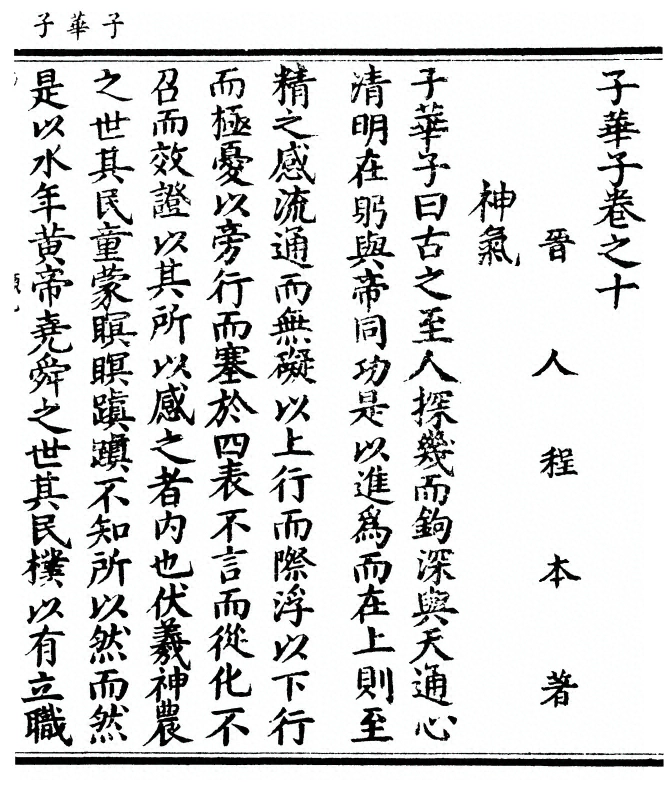 子華子
子華子卷之十
晉人程本著
神氣
子華子曰古之至人探幾而鉤深與天通心
清明在躬與帝同功是以進爲而在上則至
精之感流通而無礙以上行而際浮以下行
而極憂以旁行而塞於四表不言而從化不
召而效證以其所以感之者内也伏羲神農
之世其民童蒙瞑瞑蹎蹎不知所以然而然
是以永年黄帝堯舜之世其民樸以有立職